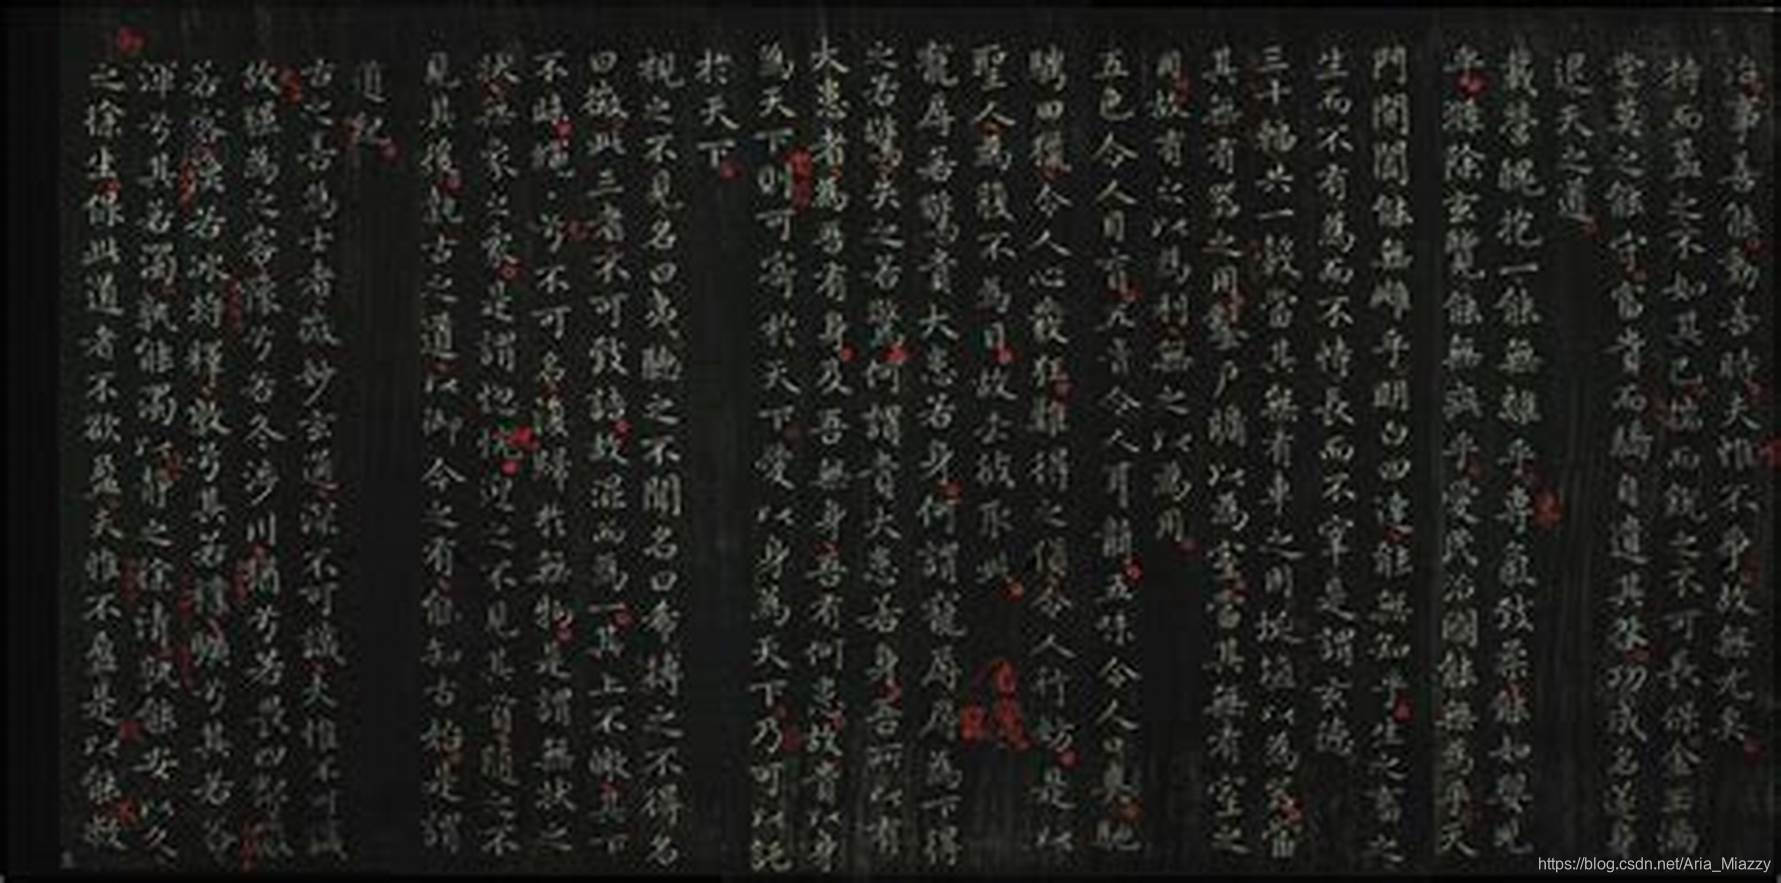 治事善能動善時夫惟不爭故無尤矣
持而盈之不如其已揣而銳之不可長保金玉滿
堂莫之能守富貴而驕自遺其咎功成名遂身
退天之道
載營魄抱一能無離乎專氣致柔能如嬰兒
乎滌除玄覽能無疵乎愛民治國能無為乎天
門開闔能無雌乎明白四達能無知乎生之畜之
生而不有為而不恃長而不宰是謂玄德
三十輻共一轂當其無有車之用埏埴以為器當
其無有器之用鑿戶牖以為室當其無有室之
用故有之以為利無之以為用
五色令人目盲五音令人耳聾五味令人口爽馳
騁田獵令人心發狂難得之貨令人行妨是以
聖人為腹不為目故去彼取此
寵辱若驚貴大患若身何謂寵辱辱為下得
之若驚失之若驚何謂貴大患若身吾所以有
大患者為吾有身及吾無身吾有何患故貴以身
為天下則可寄於天下愛以身為天下乃可以託
於天下
視之不見名曰夷聽之不聞名曰希搏之不得名
曰微此三者不可致詰故混而為一其上不皦其下
不昧繩繩兮不可名復歸於無物是謂無狀之
狀無象之象是謂惚恍迎之不見其首隨之不
見其後執古之道以御今之有能知古始是謂
道紀
古之善為士者微妙玄通深不可識夫惟不可識
故強為之容豫兮若冬涉川猶兮若畏四鄰儼
若客渙若冰將釋敦兮其若樸曠兮其若谷
渾兮其若濁孰能濁以靜之徐清孰能安以久
之徐生保此道者不欲盈夫惟不盈是以能敝
https://blog.csdn.net/Aria_Miazzy